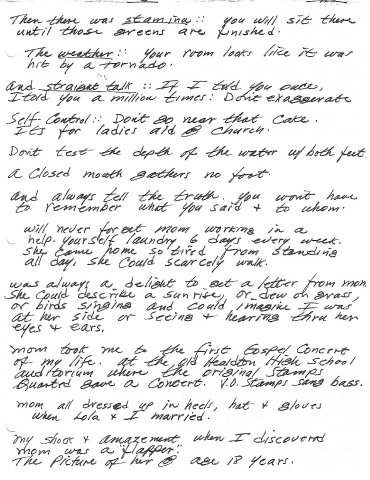 Then there was stamina:: you will sit there
until those greens are finished.
The weather:: your room looks like it was
hit by a tornado.
And straight talk :: If I told you once,
I told you a million times: Don't exaggerate
Self Control:: Don't go near that cake.
Its for ladies aid @ church.
Don't test the depth of the water w/ both feet.
A closed mouth gathers no foot.
And always tell the truth. you won't have
to remember what you said & to whom.
will never forget mom working in a
help-yourself laundry 6 days every week.
She came home so tired from standing
all day, she could scarcely walk.
was always a delight to get a letter from mom
She could describe a sunrise, or dew on grass,
or birds singing and could imagine I was
at her side or seeing & hearing thru her
eyes & ears.
mom took me to the first Gospel Concert
of my life. at the old Healdton High School
auditorium where the original Stamps
Quartrd gave a Concert. V.O. Stamps sang bass.
mom all dressed up in heels, hat & gloves
when Lola & I married.
my shock & amazement when I discovered
mom was a "flapper".
The Picture of her @ age 18 years.